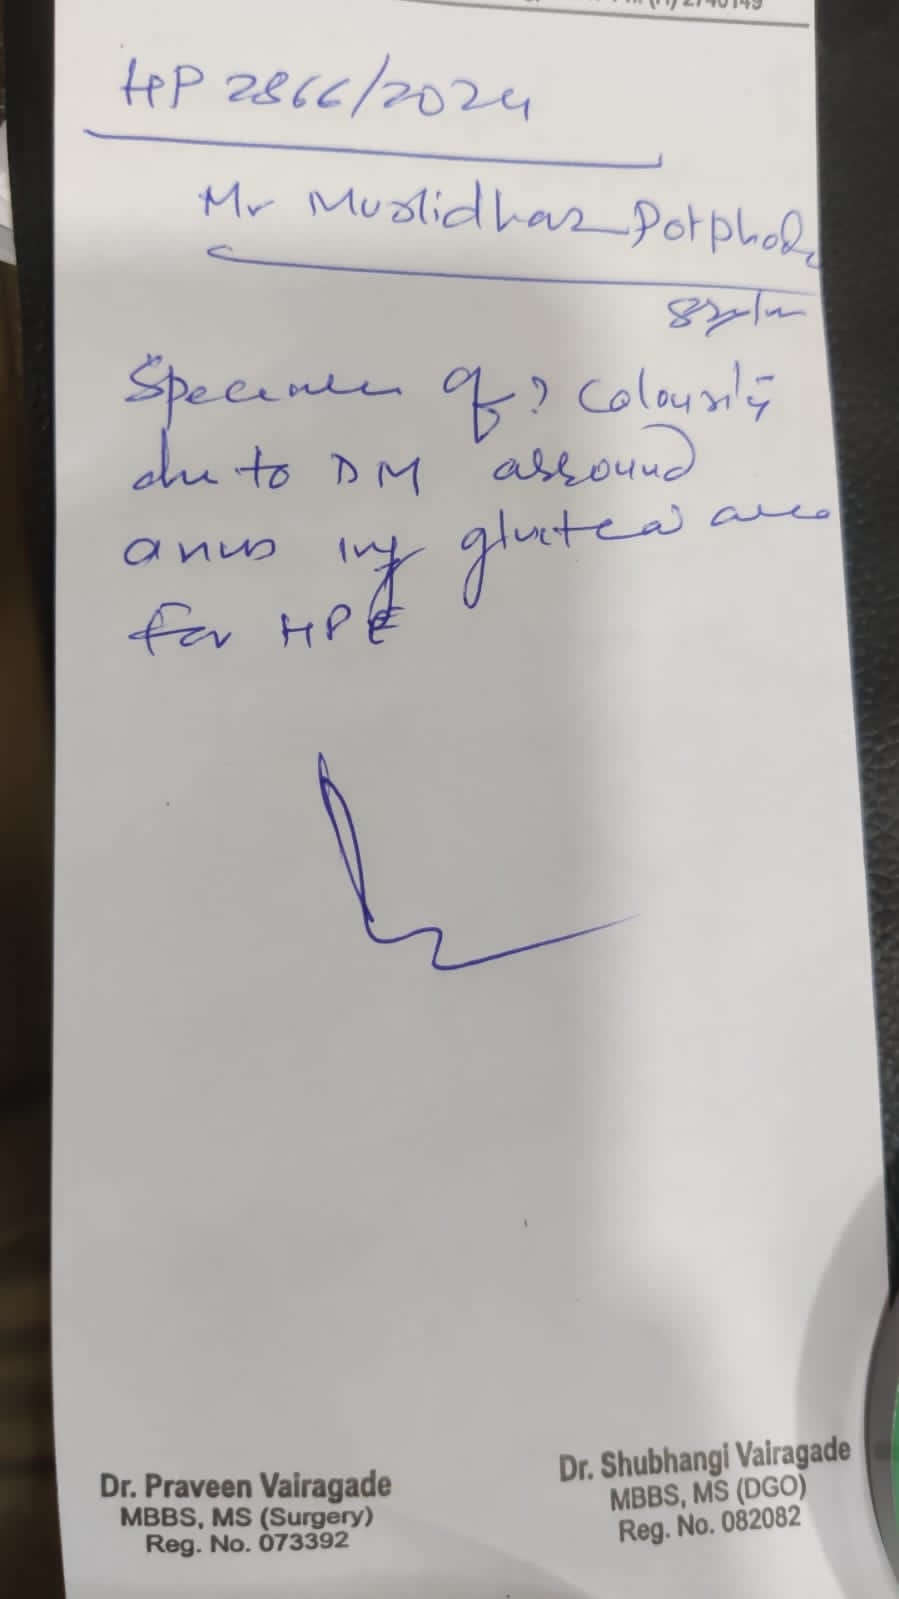 (H) 2740149
HP 2866/2024
Mr Murlidhar Potphode
Specimen of ?
due to DM around
anus in gluteal area
for HPE
Dr. Praveen Vairagade
MBBS, MS (Surgery)
Reg. No. 073392
Dr. Shubhangi Vairagade
MBBS, MS (DGO)
Reg. No. 082082